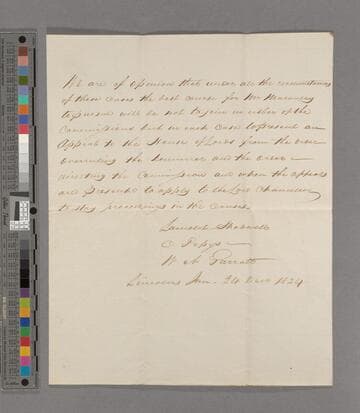 We are of opinion that under all the circumstances
of these cases the best course for Mr
to pursue will be not to join in either of the
Commissions but in each case to present an
Appeal to the House of Lords from the order
overruling the Demurrer and the order
directing the Commission and when the appeals
are presented to apply to the Lord Chancellor
to stay proceedings in the causes
Launcelot Shadwell
C Pepys
W A Garratt
Lincolns Inn 24 1824